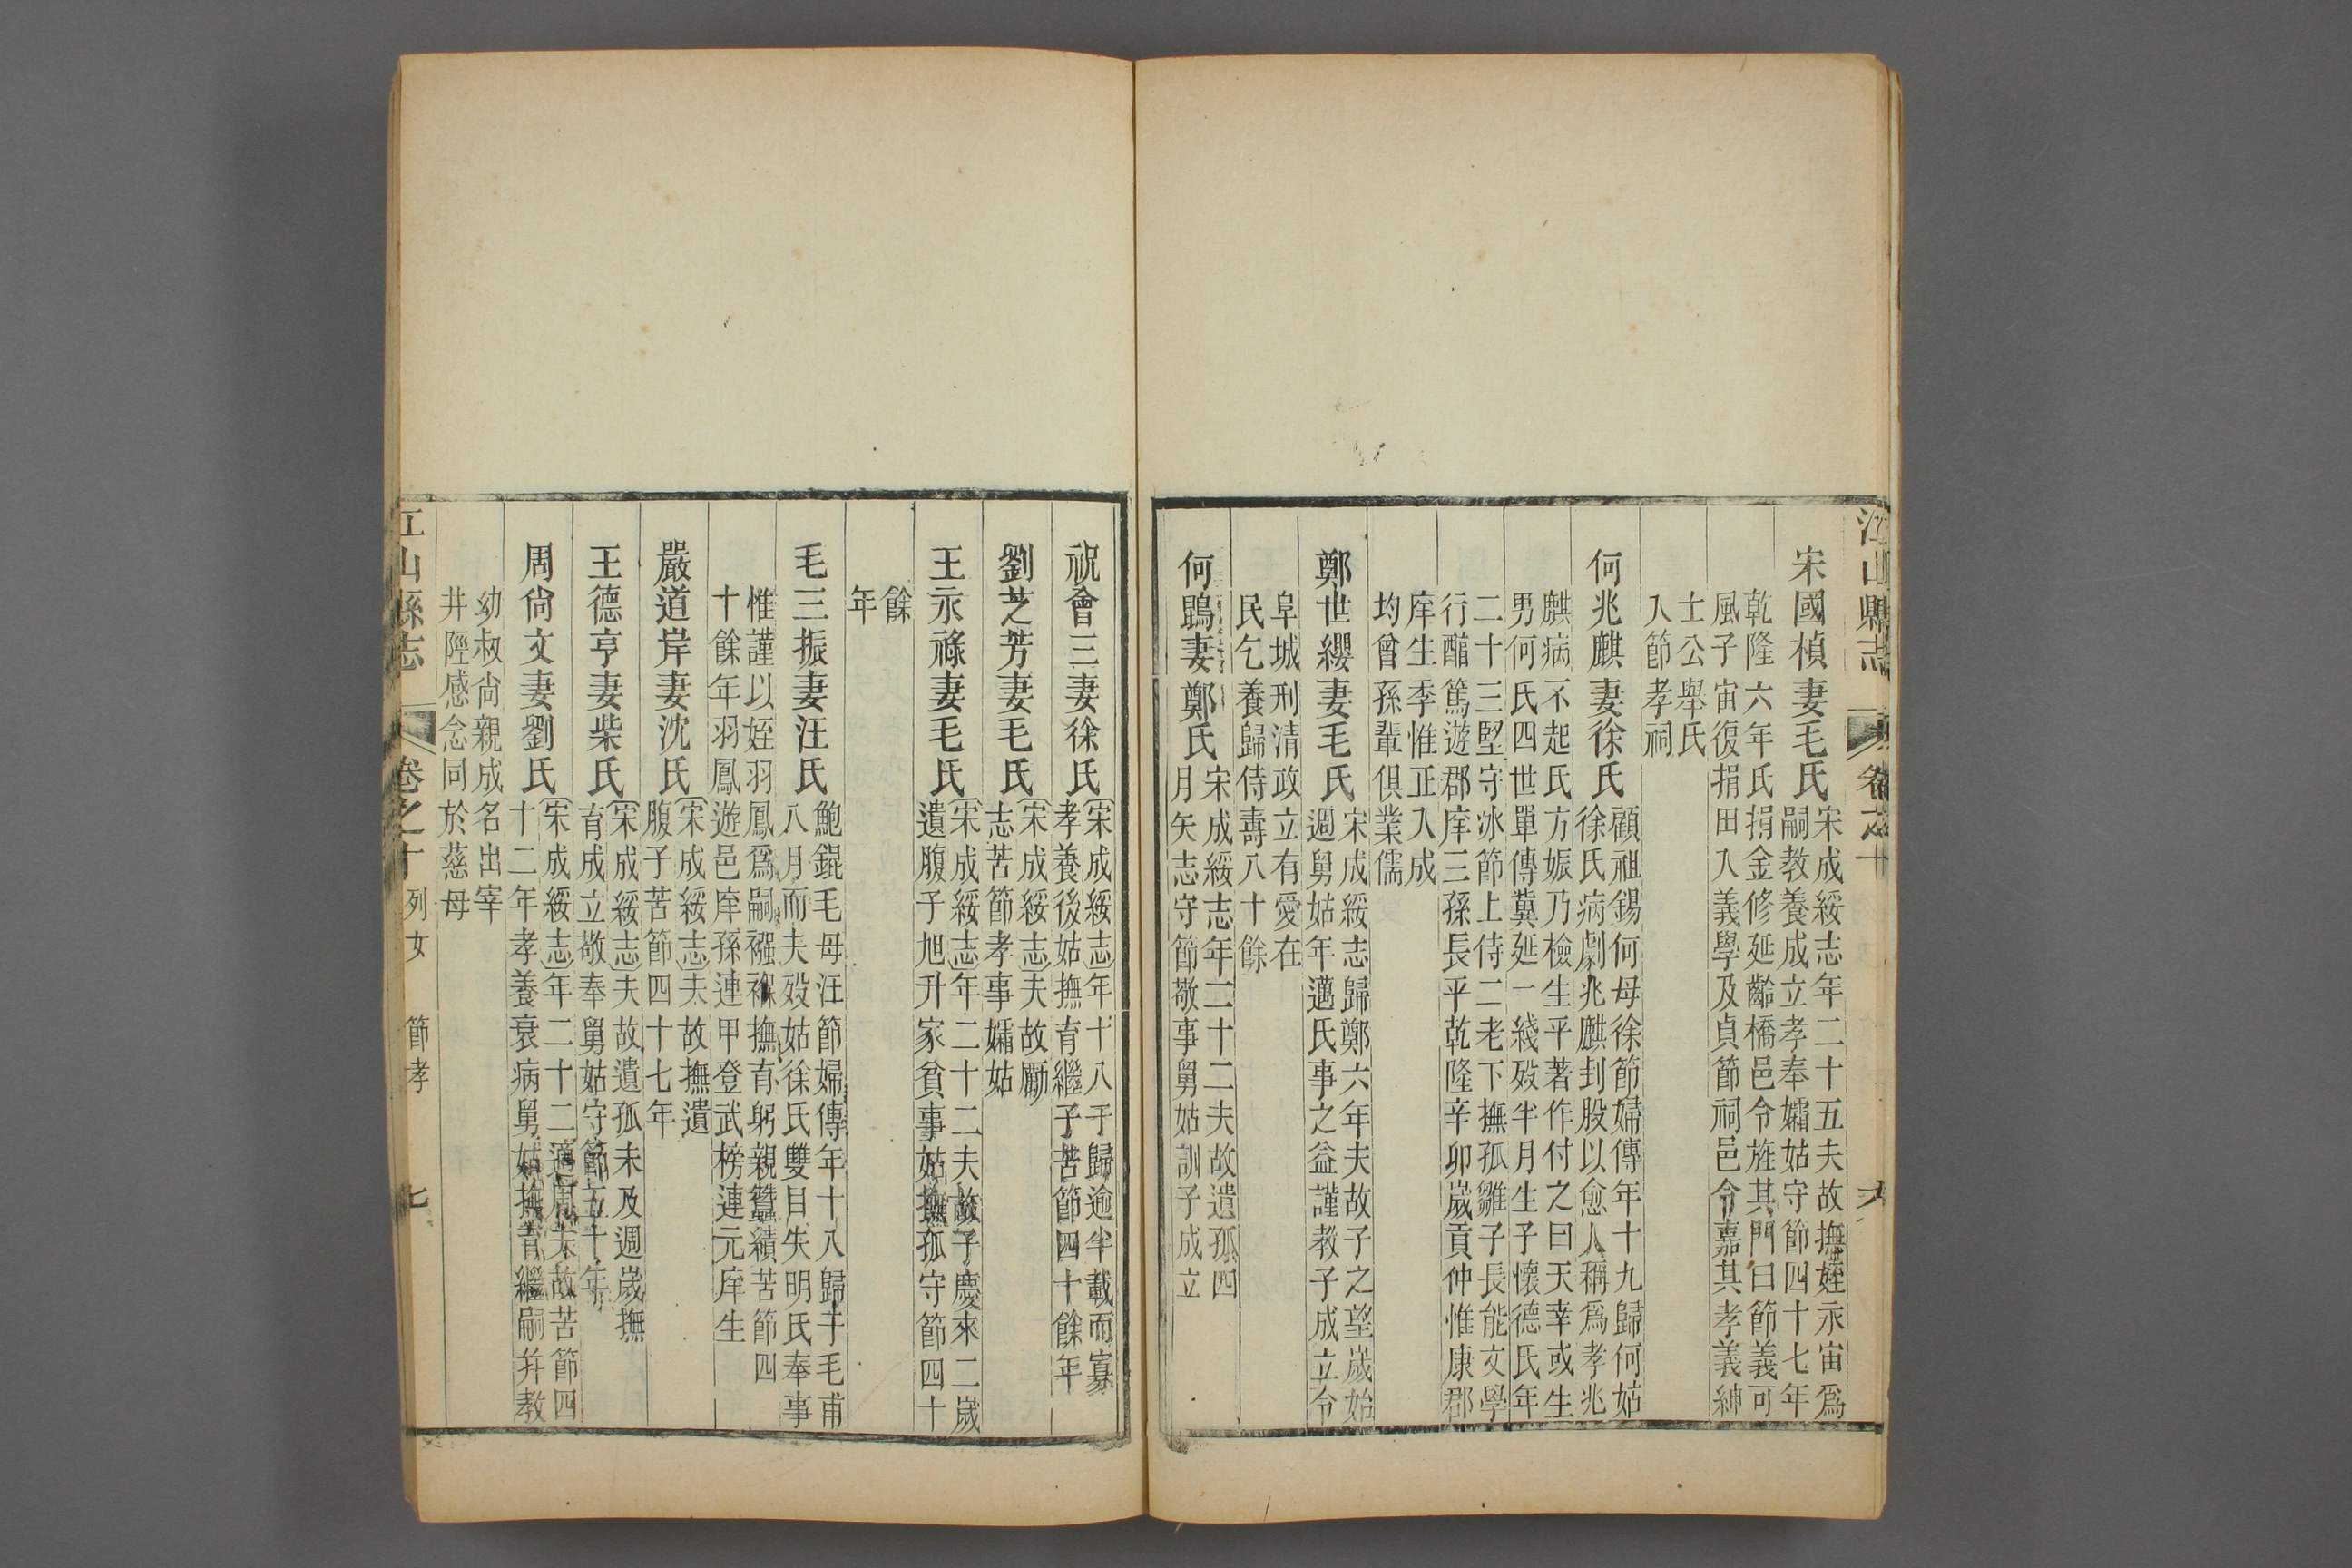 江山縣志
卷之十
六
宋國楨妻毛氏
宋成綏志年二十五夫故撫姪永宙爲
嗣教養成立孝奉孀姑守節四十七年
乾隆六年氏捐金修延齡橋邑令旌其門曰節義可
風子宙復捐田入義學及貞節祠邑令嘉其孝義紳
士公舉氏
入節孝祠
何兆麒妻徐氏
顧祖錫何母徐節婦傳年十九歸何姑
徐氏病劇兆麒刲股以愈人稱爲孝兆
麒病不起氏方娠乃檢生平著作付之曰天幸或生
男何氏四世單傳冀延一綫歿半月生子懷德氏年
二十三堅守冰節上侍二老下撫孤雛子長能文學
行醮篤遊郡庠三孫長平乾隆辛卯歲貢仲惟康郡
庠生季惟正入成
均曾孫輩俱業儒
鄭世纓妻毛氏
宋成綏志歸鄭六年夫故子之望歲始
週舅姑年邁氏事之益謹教子成立令
阜城刑清政立有愛在
民乞養歸侍壽八十餘
何鵾妻鄭氏
宋成綏志年二十二夫故遺孤四
月矢志守節敬事舅姑訓子成立
祝會三妻徐氏
宋成綏志年十八于歸逾半載而寡
孝養後姑撫育繼子苦節四十餘年
劉芝芳妻毛氏
宋成綏志夫故勵
志苦節孝事孀姑
王永祿妻毛氏
宋成綏志年二十二夫故子慶來二歲
遺腹子旭升家貧事姑撫孤守節四十
餘
年
毛三振妻汪氏
鮑錕毛母汪節婦傳年十八歸于毛甫
八月而夫歿姑徐氏雙目失明氏奉事
惟謹以姪羽鳳爲嗣襁褓撫育躬親蠶績苦節四
十餘年羽鳳遊邑庠孫連甲登武榜連元庠生
嚴道岸妻沈氏
宋成綏志夫故撫遺
腹子苦節四十七年
王德亨妻柴氏
宋成綏志夫故遺孤未及週歲撫
育成立敬奉舅姑守節五十年
周尙文妻劉氏
宋成綏志年二十二適周夫故苦節四
十二年孝養衰病舅姑撫育繼嗣幷教
幼叔尙親成名出宰
井陘感念同於慈母
江山縣志
卷之十
列女
節孝
七